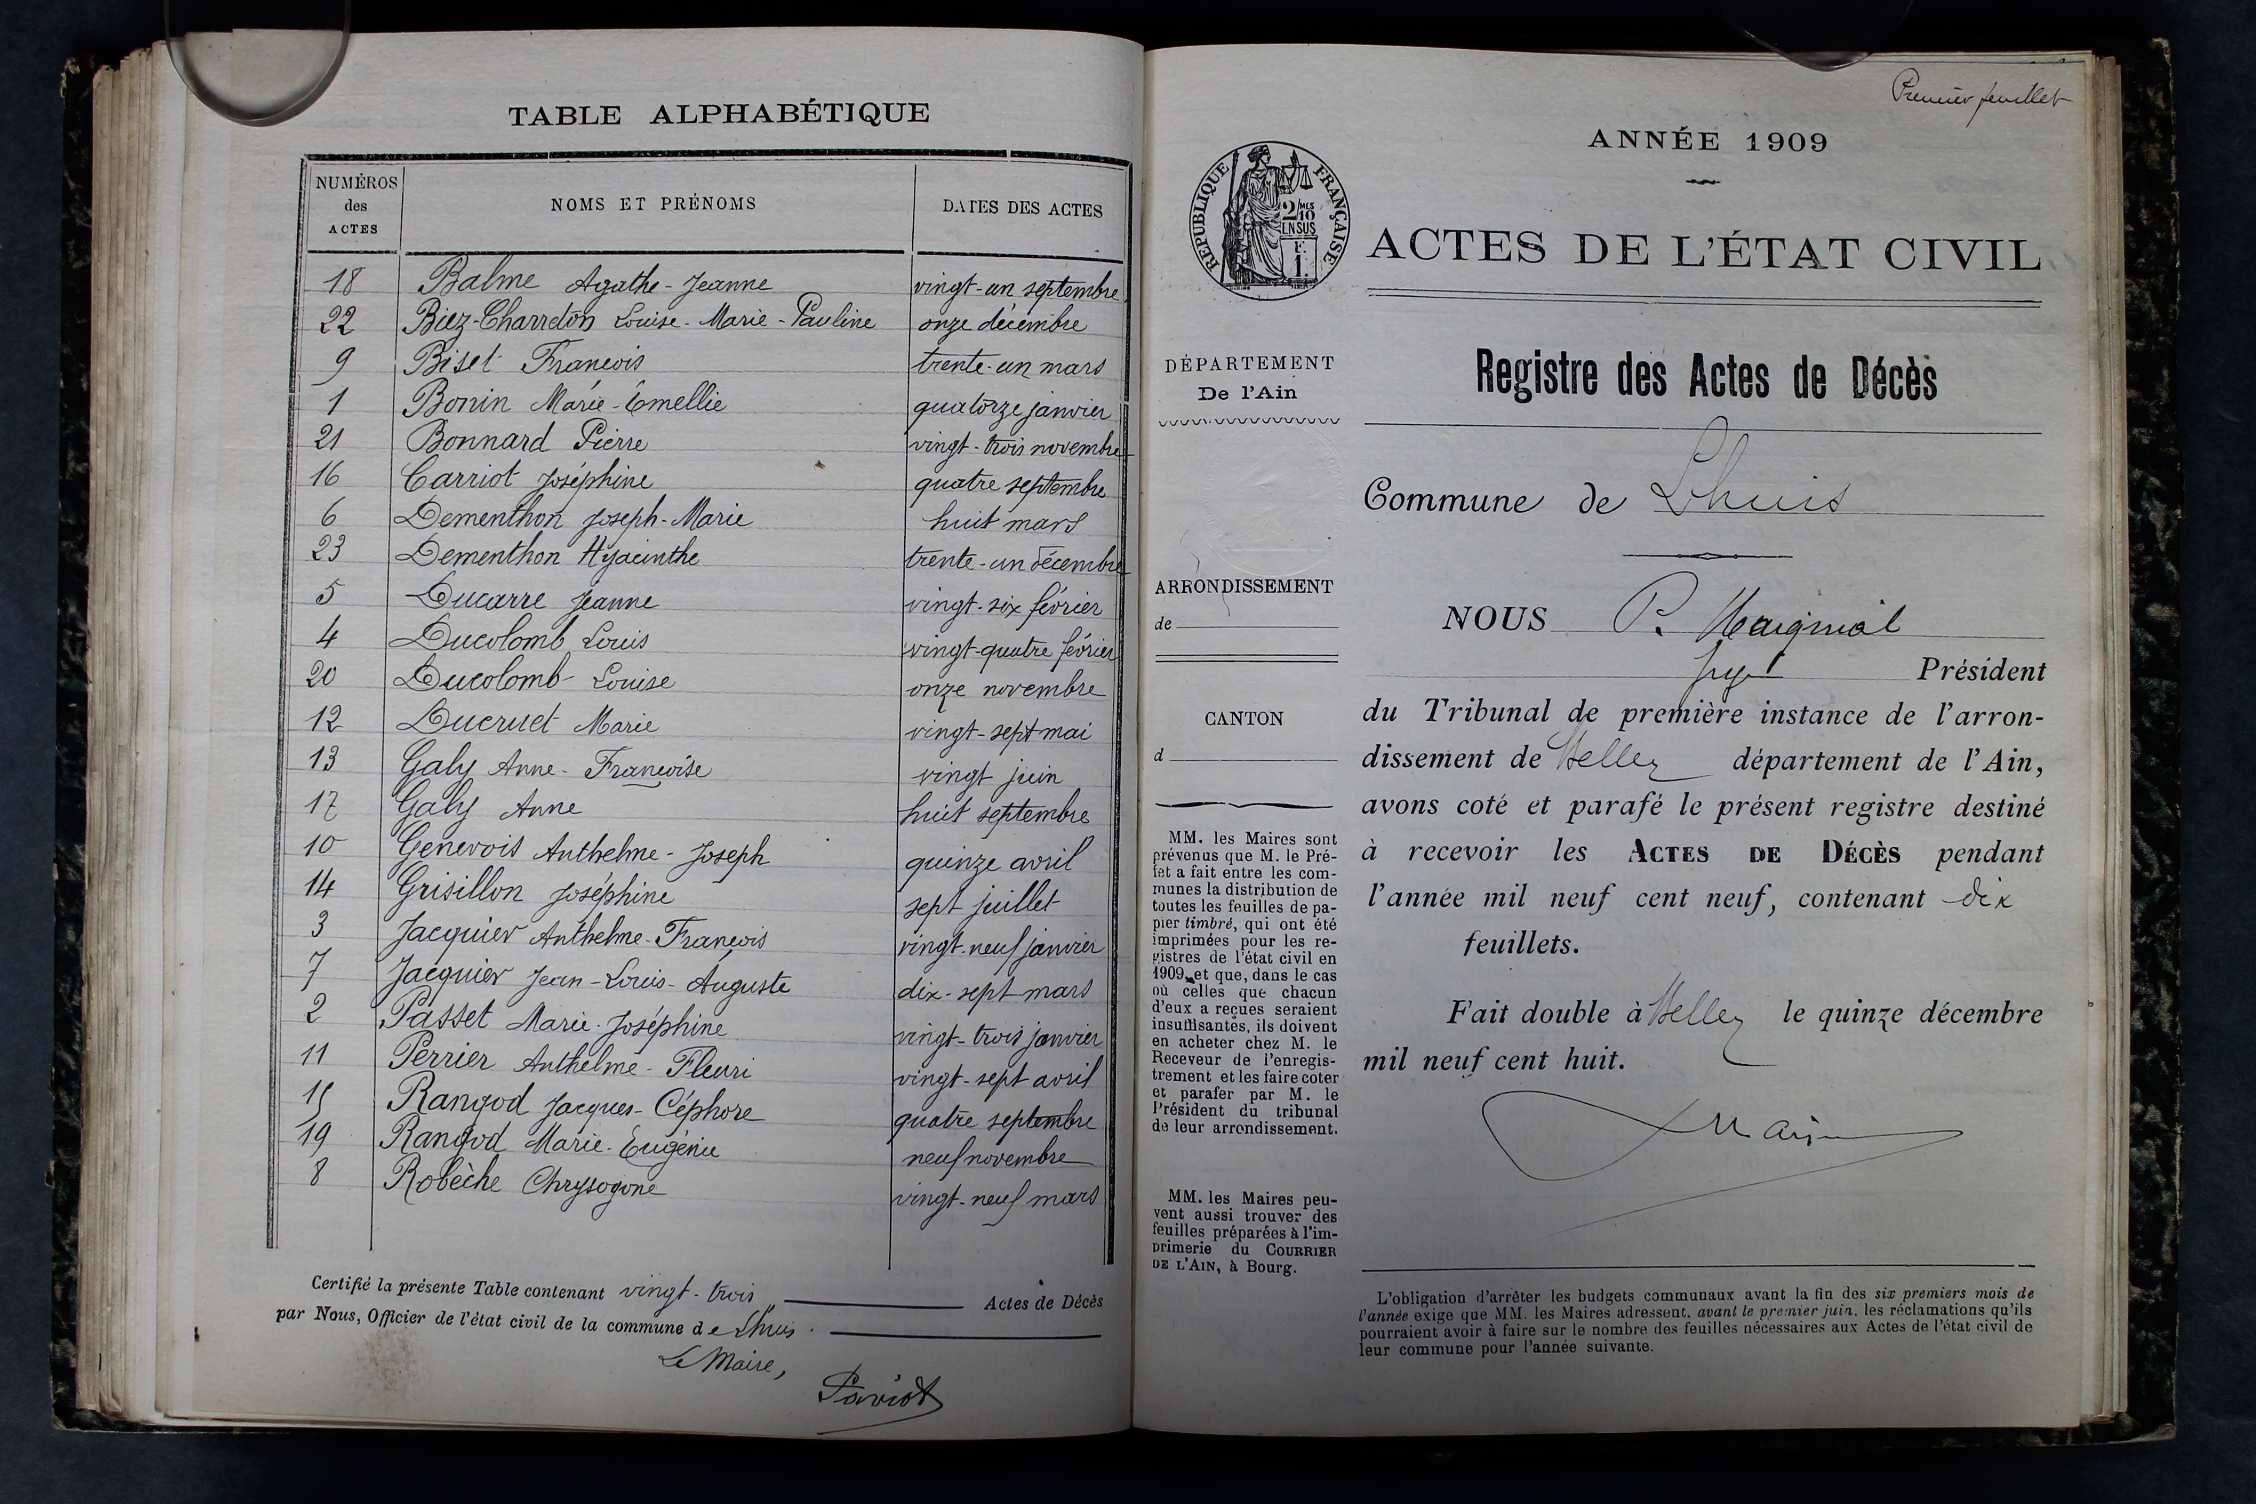 TABLE ALPHABÉTIQUE
NUMÉROS des ACTES NOMS ET PRÉNOMS DATES DES ACTES
18 Balme Agathe-Jeanne vingt-un septembre
22 Biez-Charreton Louise-Marie-Pauline onze décembre
9 Biset François trente-un mars
1 Bonin Marie-Émellie quatorze janvier
21 Bonnard Pierre vingt-trois novembre
16 Carriot Joséphine quatre septembre
6 Dementhon Joseph-Marie huit mars
23 Dementhon Hyacinthe trente-un décembre
5 Ducarre Jeanne vingt-six février
4 Ducolomb Louis vingt-quatre février
20 Ducolomb Louise onze novembre
12 Ducruet Marie vingt-sept mai
13 Galy Anne-Françoise vingt juin
17 Galy Anne huit septembre
10 Genevois Anthelme-Joseph quinze avril
14 Grisillon Joséphine sept juillet
3 Jacquier Anthelme-François vingt-neuf janvier
7 Jacquier Jean-Louis-Auguste dix-sept mars
2 Passet Marie-Joséphine vingt-trois janvier
11 Perrier Anthelme-Fleuri vingt-sept avril
15 Rangod Jacques-Céphore quatre septembre
19 Rangod Marie-Eugénie neuf novembre
8 Robèche Chrysogone vingt-neuf mars
Certifié la présente Table contenant vingt-trois Actes de Décès
par Nous, Officier de l'état civil de la commune de Lhuis.
Le Maire,
Paviot
Premier feuillet
ANNÉE 1909
RÉPUBLIQUE FRANÇAISE
2/10 MES
EN SUS
1 F.
ACTES DE L'ÉTAT CIVIL
DÉPARTEMENT
De l'Ain
ARRONDISSEMENT
de
CANTON
d
MM. les Maires sont
prévenus que M. le Pré-
fet a fait entre les com-
munes la distribution de
toutes les feuilles de pa-
pier timbré, qui ont été
imprimées pour les re-
gistres de l'état civil en
1909, et que, dans le cas
où celles que chacun
d'eux a reçues seraient
insuffisantes, ils doivent
en acheter chez M. le
Receveur de l'enregis-
trement et les faire coter
et parafer par M. le
Président du tribunal
de leur arrondissement.
MM. les Maires peu-
vent aussi trouver des
feuilles préparées à l'im-
primerie du COURRIER
DE L'AIN, à Bourg.
Registre des Actes de Décès
Commune de Lhuis
NOUS P.
Président
du Tribunal de première instance de l'arron-
dissement de Belley département de l'Ain,
avons coté et parafé le présent registre destiné
à recevoir les ACTES DE DÉCÈS pendant
l'année mil neuf cent neuf, contenant dix
feuillets.
Fait double à Belley le quinze décembre
mil neuf cent huit.
L'obligation d'arrêter les budgets communaux avant la fin des six premiers mois de
l'année exige que MM. les Maires adressent, avant le premier juin, les réclamations qu'ils
pourraient avoir à faire sur le nombre des feuilles nécessaires aux Actes de l'état civil de
leur commune pour l'année suivante.